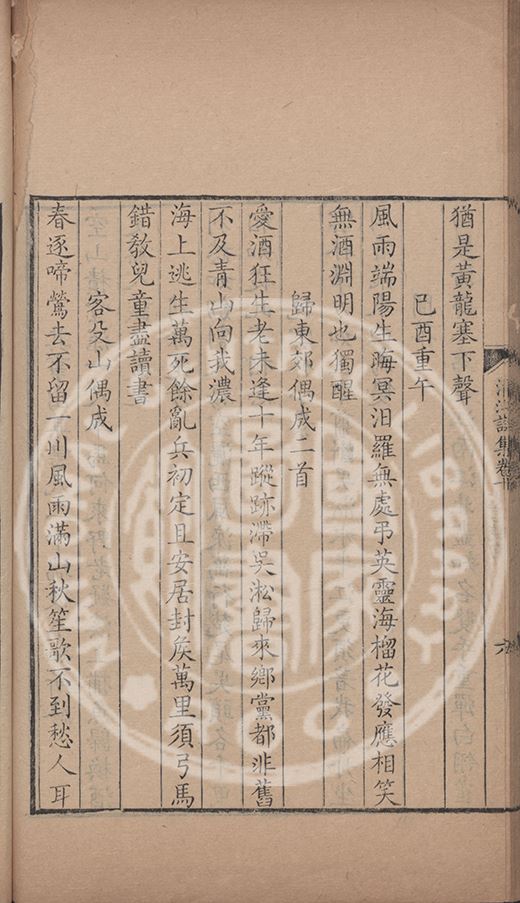 猶是黃龍塞下聲
己酉重午
風雨端陽生晦冥汨羅無處弔英靈海榴花發應相笑
無酒淵明也獨醒
歸東郊偶成二首
愛酒狂生老未逢十年蹤跡滯吳淞歸來鄉黨都非舊
不及青山向我濃
海上逃生萬死餘亂兵初定且安居封矦萬里須弓馬
錯敎兒童盡讀書
客殳山偶成
春逐啼鶯去不留一川風雨滿山秋笙歌不到愁人耳